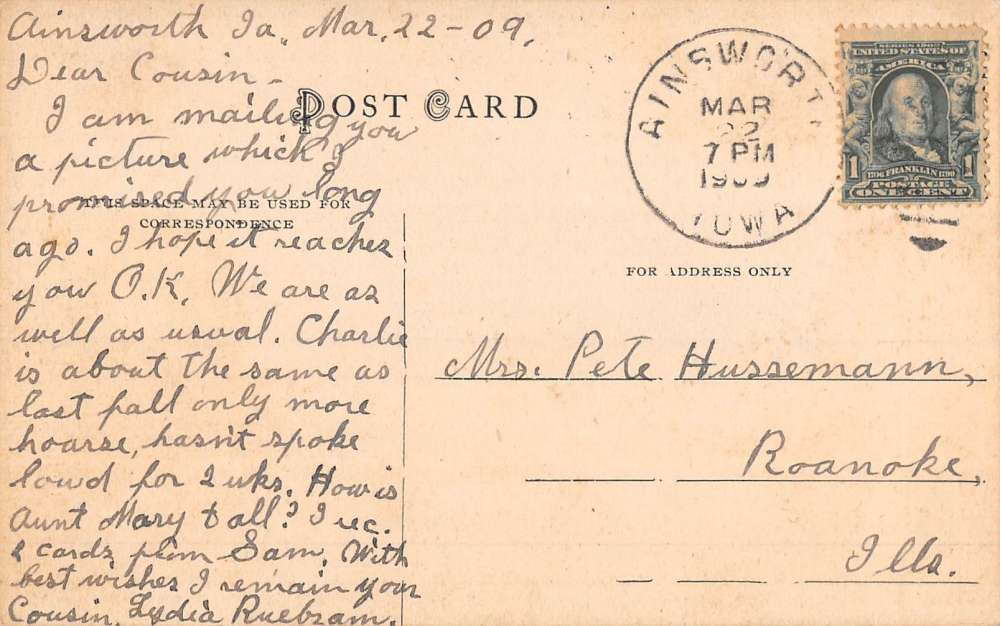 Ainsworth Ia, Mar, 22-09,
Dear Cousin -
I am mailing you
a picture which I
promised you long
ago. I hope it reaches
you O.K, We are as
well as usual. Charlie
is about the same as
last fall only more
hoarse, hasn't spoke
loud for 2 wks. How is
Aunt Mary & all? I rec.
2 cards from Sam, With
best wishes I remain your
Cousin, Lydia Ruebsam.
POST CARD
THIS SPACE MAY BE USED FOR
CORRESPONDENCE
AINSWORTH
MAR
22
7 PM
1909
IOWA
SERIES 1902
UNITED STATES OF
AMERICA
1 1706 FRANKLIN 1790 1
POSTAGE
ONE CENT
FOR ADDRESS ONLY
Mrs. Pete Hussemann,
Roanoke,
Ills.